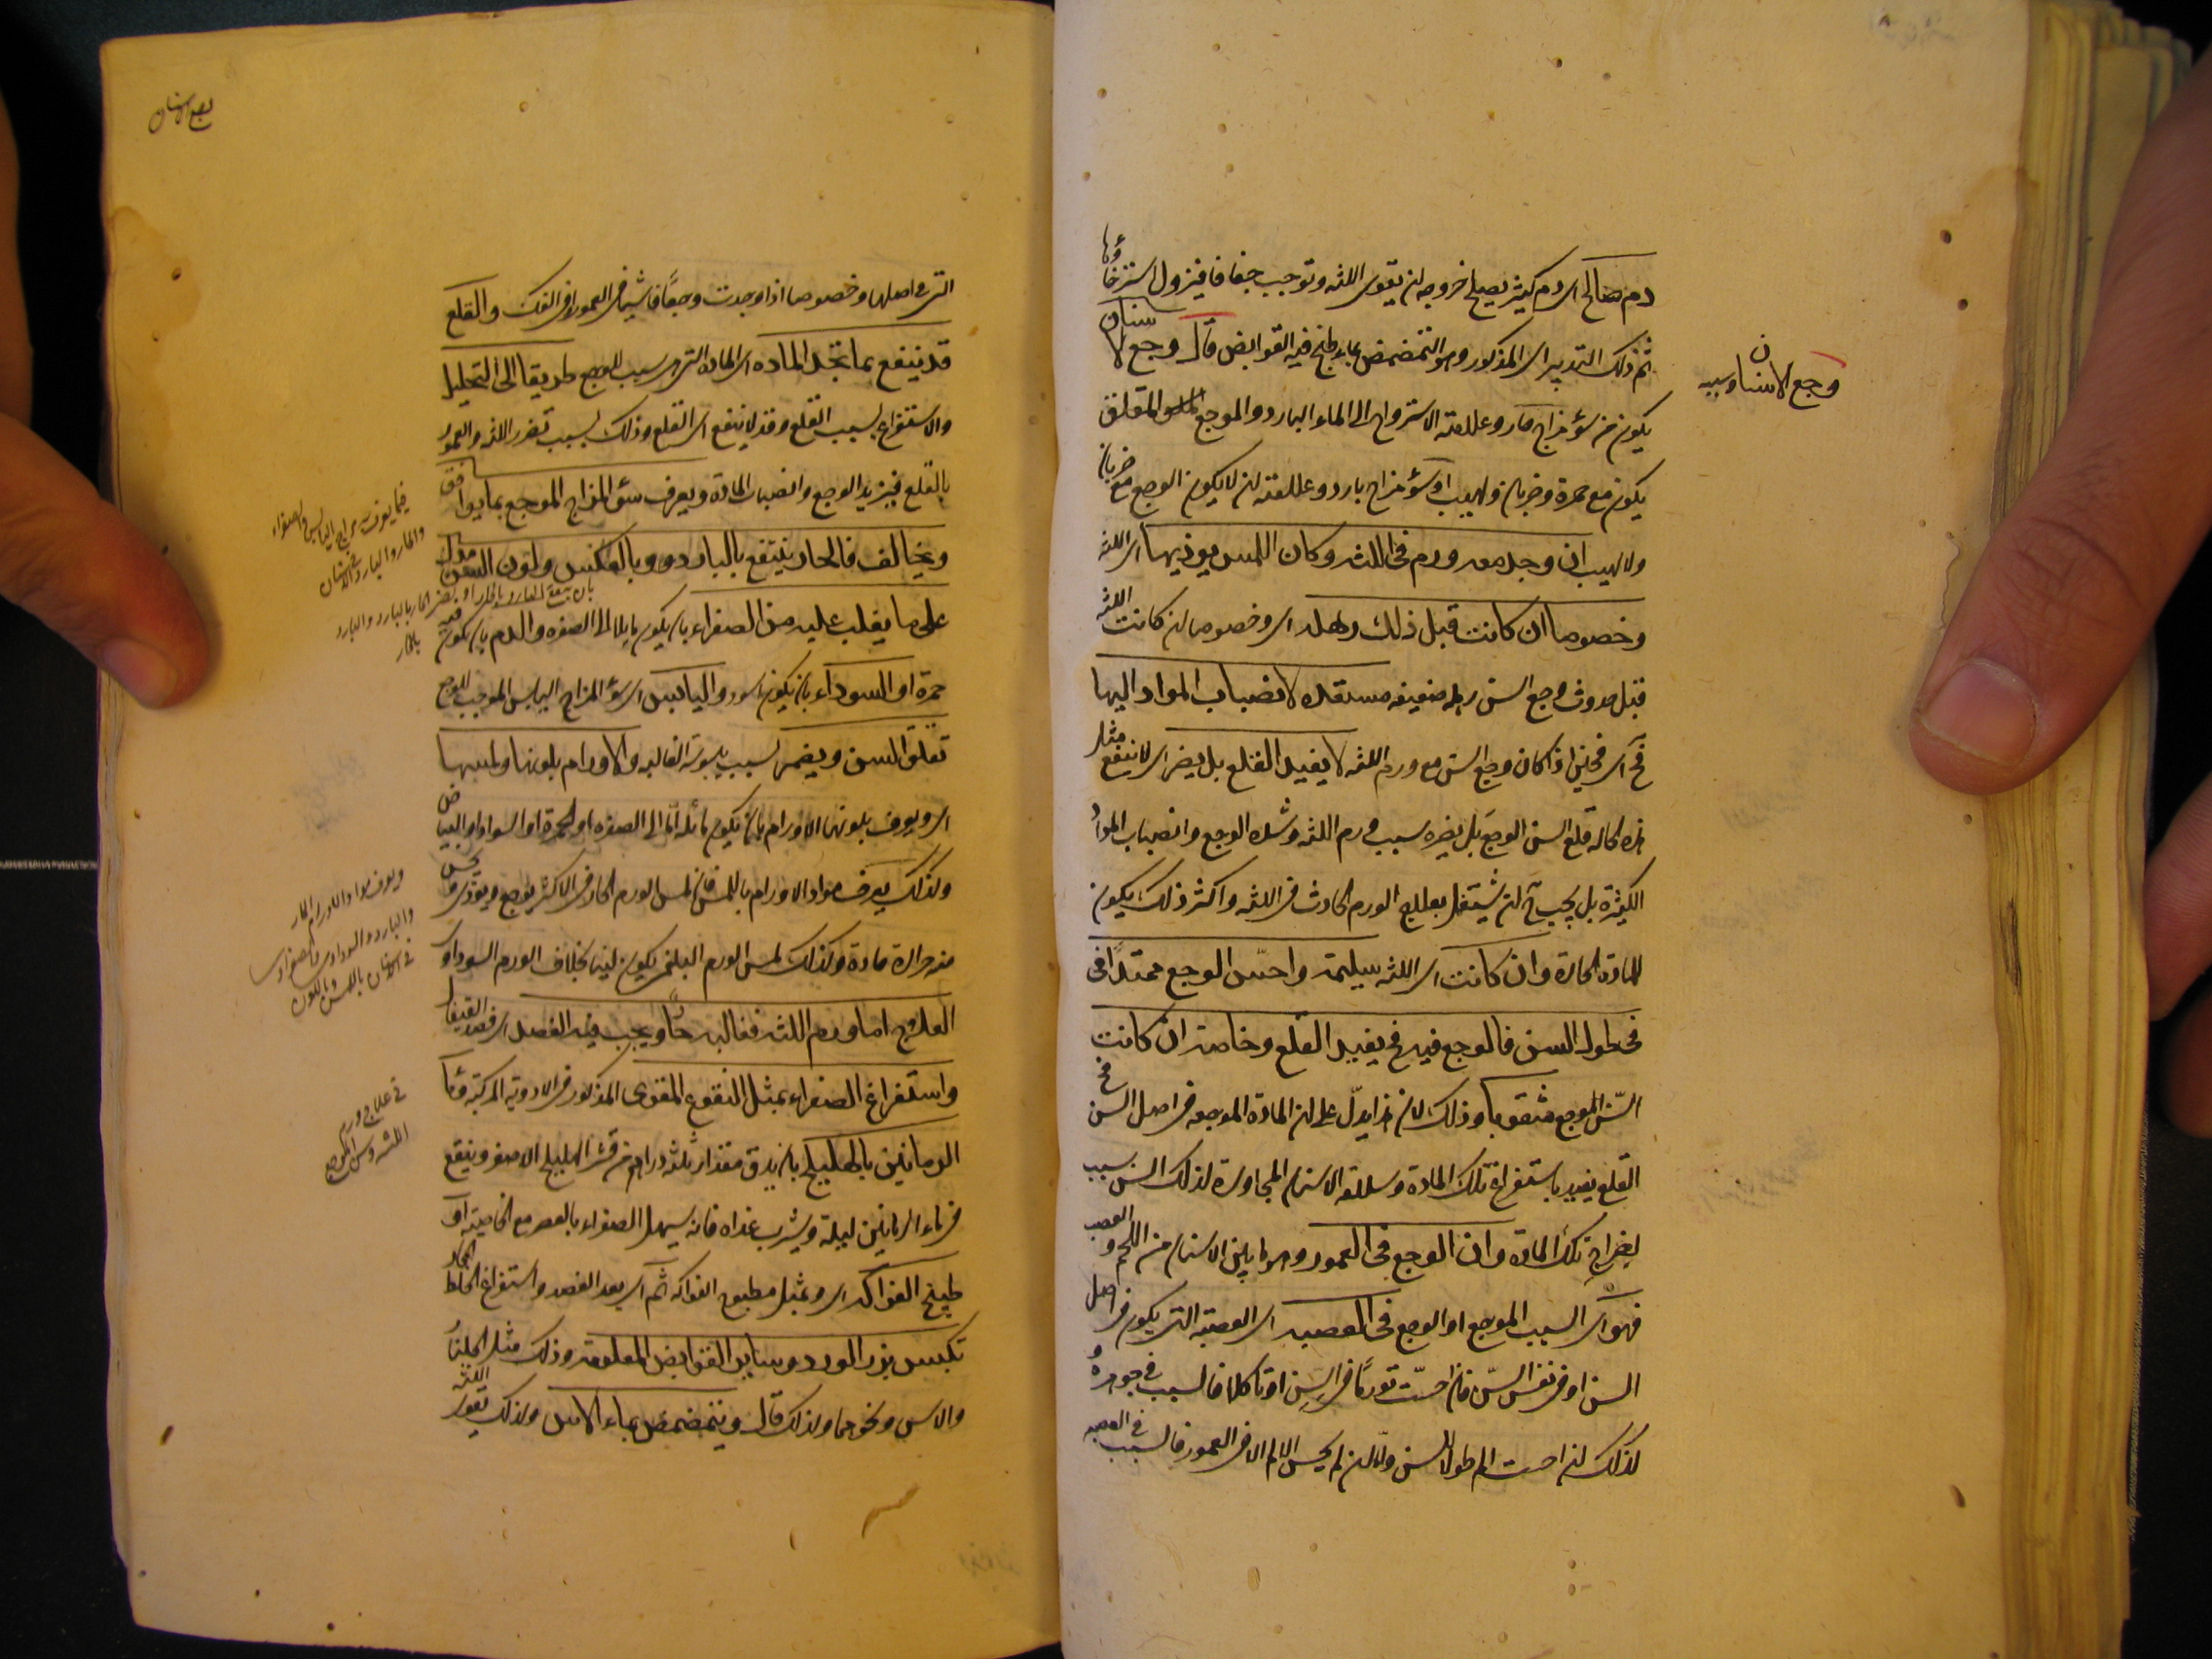 دم صالح اى دم كثير يصلح خروجه لان يقوى اللثه وتوجب جفافا فيزول استرخاؤها
ثم ذلك التدبير اى المذكور وهو التمضمض بماء طبخ فيه القوابض قال وجع الاسنان
وجع الاسنان وسببه
يكون من سؤ مزاج حار وعلامته الاسترواح الى الماء البارد والموجع المقلق
يكون مع حمرة وضربان ولهيب او سؤ مزاج بارد وعلامته ان لا يكون الوجع مع ضربان
ولا لهيب ان وجد معه ورم فى اللثه وكان اللمس يوذيها اى اللثه
وخصوصا ان كانت قبل ذلك رهله اى وخصوصا ان كانت اللثه
قبل حدوث وجع السن رهله ضعيفه مستعده لانصباب المواد اليها
فح اى فحينئذ اذا كان وجع السن مع ورم اللثه لا يفيد القلع بل يضر اى لا ينفع مثل
هذه الحاله قلع السن الوجع بل يضره بسبب ورم اللثه وشده الوجع وانصباب المواد
الكثيرة بل يجب ح ان يشتغل بعلاج الورم الحادث فى اللثه واكثر ذلك يكون
للمادة الحارة وان كانت اى اللثه سليمة واحس الوجع ممتدا فى
فى طول السن فالوجع فيه فح يفيد القلع وخاصة ان كانت
السن الموجع مثقوبا وذلك لان هذا يدل على ان المادة الموجعه فى اصل السن فح
القلع يفيد باستفراغ تلك المادة وسلامة الاسنان المجاورة لذلك السن بسبب
اخراج تلك المادة وان الوجع فى العمور وهو ما بين الاسنان من اللحم والعصب
فهو اى السبب الموجع او الوجع فى العصبه اى العصبه التى يكون فى اصل
السن او فى نفس السن فان احست تورما فى السن او تاكلا فالسبب فى جوهره و
كذلك ان احست الم طول السن وان لم يحس الالم الا فى العمور فالسبب فى العصبه
وجع الاسنان
التى فى اصلها وخصوصا اذا وجدت وجعا فاشيا فى العمور او فى الفك والقلع
قد ينتفع بما تجد المادة اى المادة التى هى سبب الوجع طريقا الى التحليل
والاستفراغ بسبب القلع وقد لا ينتفع اى القلع وذلك بسبب تضرر اللثه والعمور
بالقلع فيزيد الوجع وانصباب المادة ويعرف سؤ المزاج الموجع بما يوافق
ويخالف فالحار ينتفع بالبارد وبالعكس ولون السن يدل
على ما يغلب عليه من الصفراء بان يكون مايلا الى الصفره والدم بان يكون فيه
حمرة او السوداء بان يكون اسود واليابس اى سؤ المزاج اليابس الموجب للوجع
تقلق السن ويضمر بسبب يبوسته الغالبه والاورام بلونها ولمسها
اى ويعرف بلونها الاورام بان يكون مائلة اما الى الصفره او الحمرة او السواد او البياض
وكذلك يعرف مواد الاورام باللمس فان لمس الورم الحار فى الاكثر يوجع ويوذى ويحس
منه حرارة حادة وكذلك لمس الورم البلغمى يكون لينا بخلاف الورم السوداوى
العلاج اما ورم اللثه فغالبه حار ويجب فيه الفصد اى فصد القيفال
واستفراغ الصفراء بمثل النقوع المقوى المذكور فى الادوية المركبة وماء
الرمانين بالهليلج بان يدق مقدار ثلثه دراهم من قشر الهليلج الاصفر وينقع
فى ماء الرمانين ليلة ويشرب غداه فانه يسهل الصفراء بالعصر مع الخاصية او
طبيخ الفواكه اى وبمثل مطبوخ الفواكه ثم اى بعد الفصد واستفراغ الخلط الحار
تكبس بزر الورد وساير القوابض المعلومة وذلك مثل الجلنار
والاس ونحوهما ولذلك قال ويتمضمض بماء الاس ولذلك تقوى اللثه
فيما يعرف سؤ مزاج اليابس والصفراء
والحار والبارد فى الاسنان
ويعرف مواد الاورام الحار
والبارد والسوداوى والصفراوى
فى الاسنان باللمس وباللون
فى علاج ورم
اللثه وسن الموجع